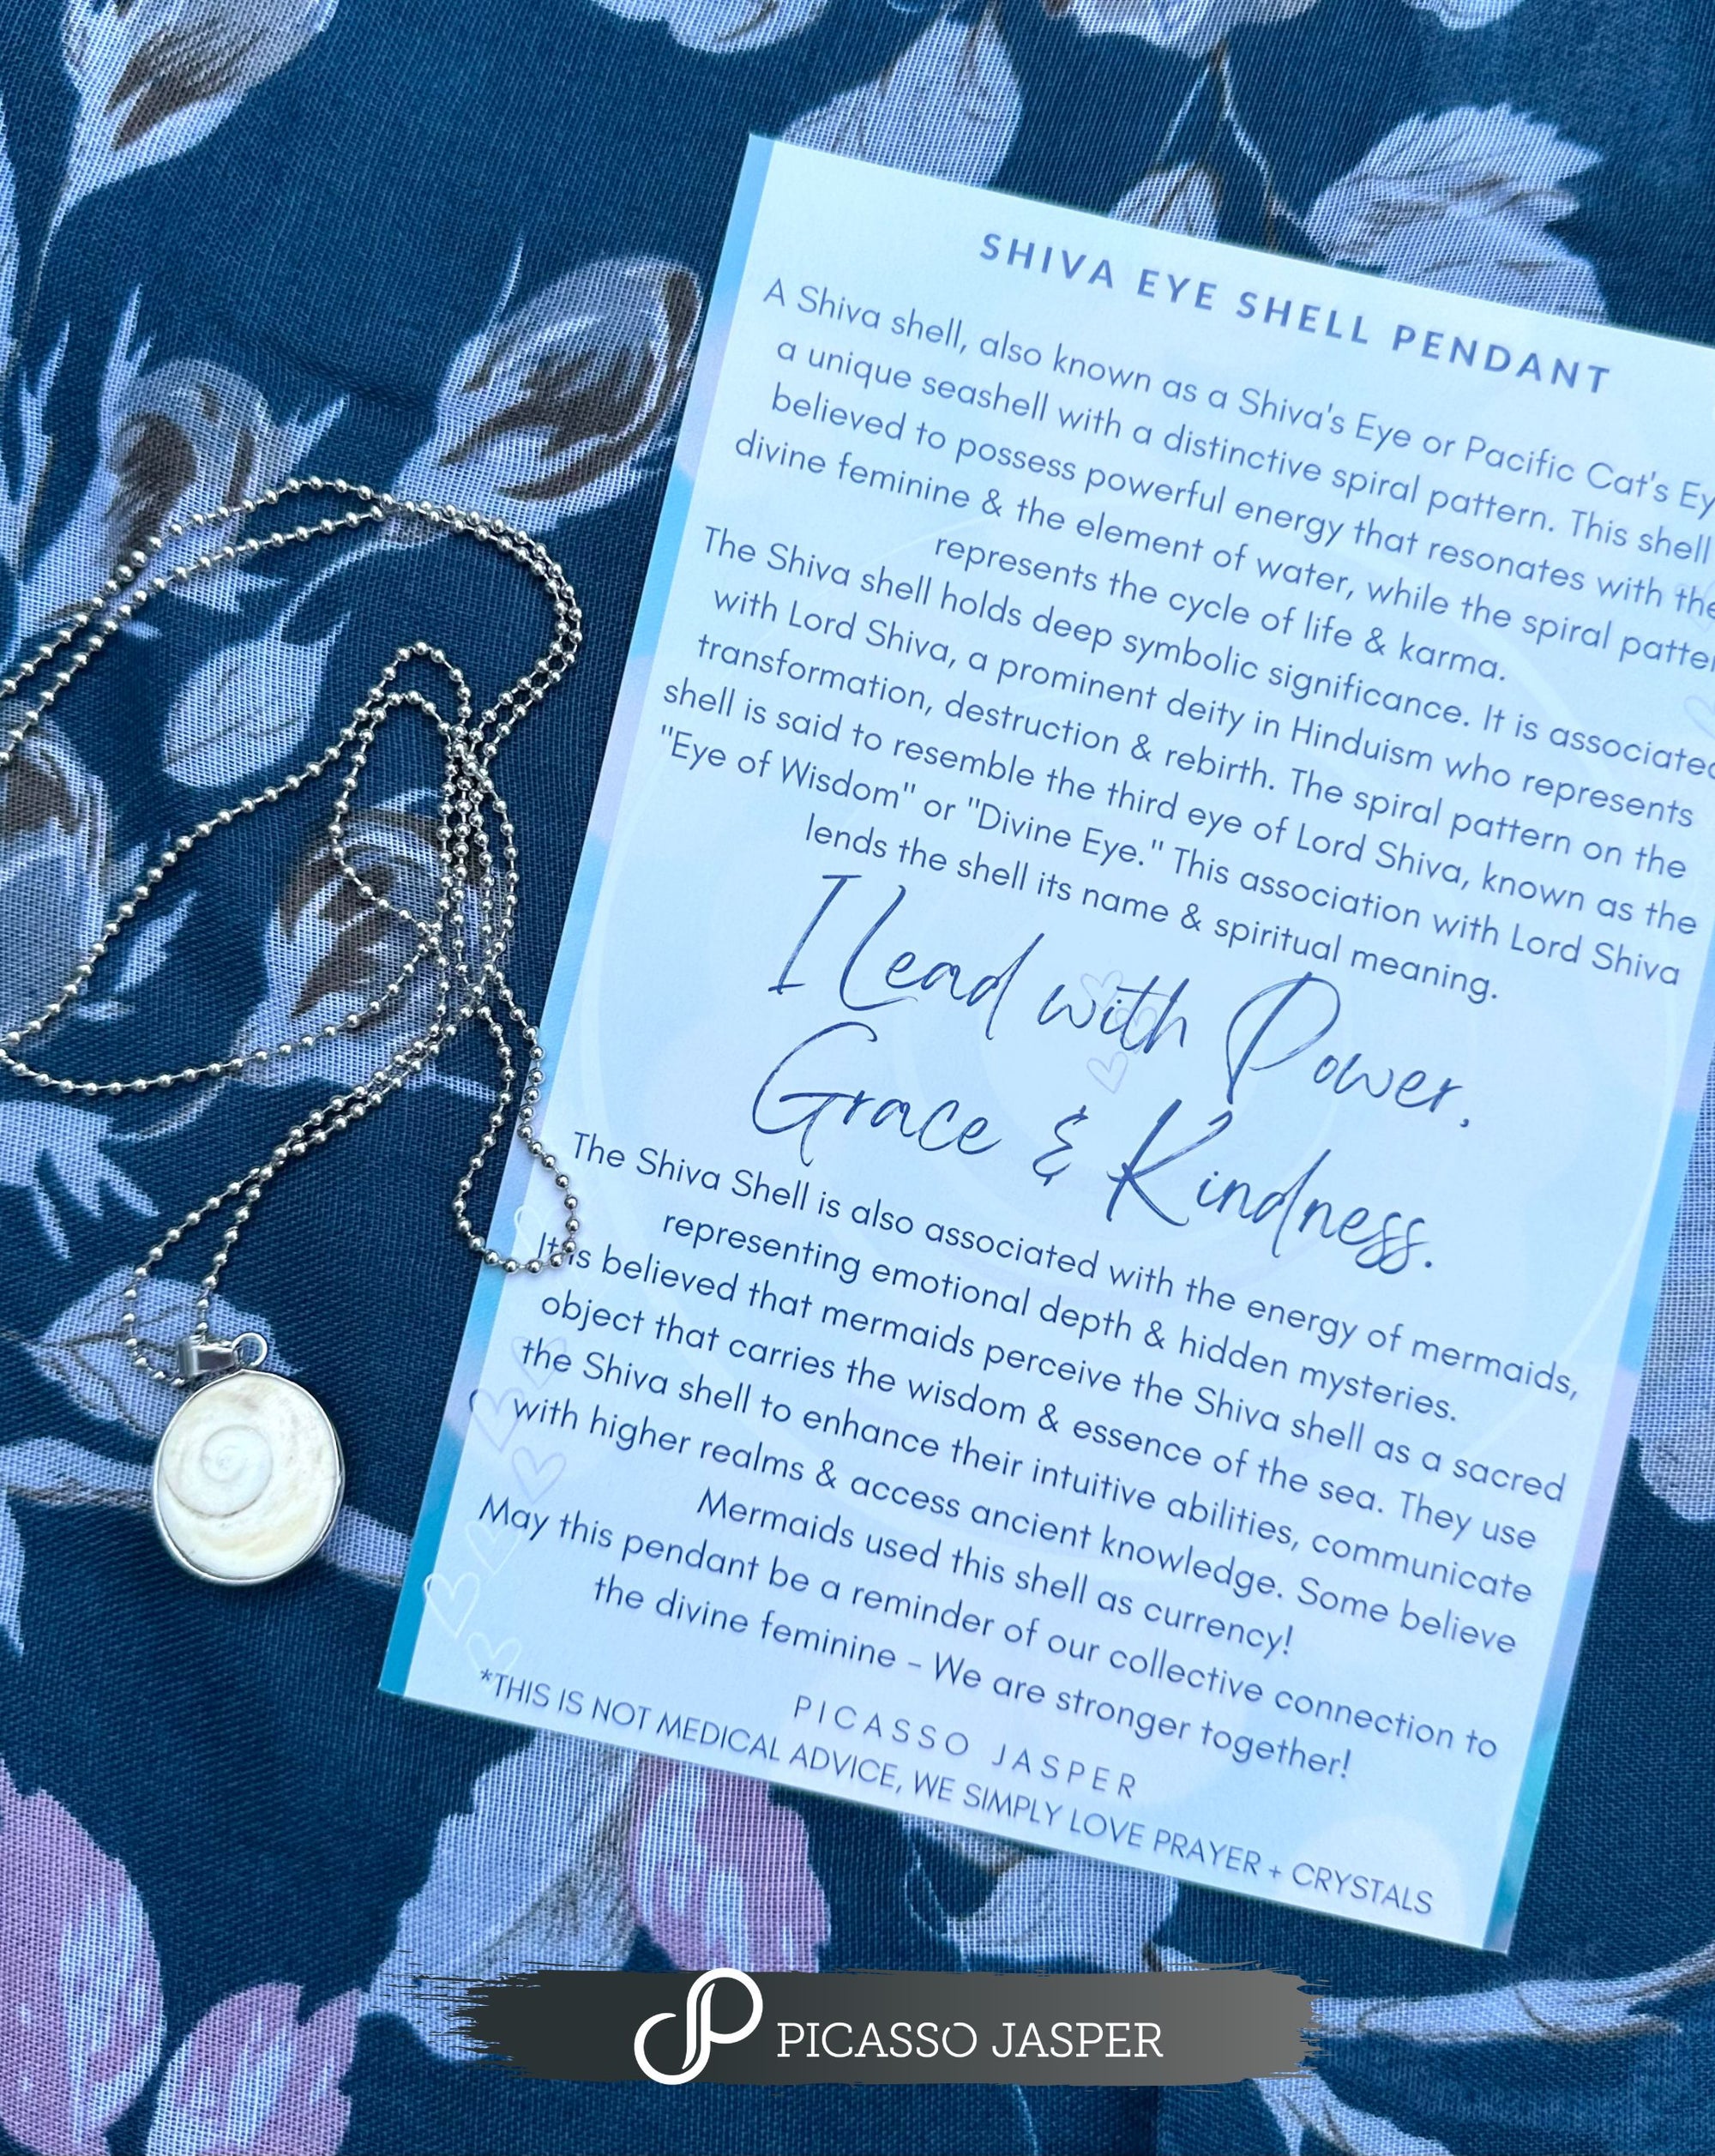 SHIVA EYE SHELL PENDANT
A Shiva shell, also known as a Shiva's Eye or Pacific Cat's
a unique seashell with a distinctive spiral pattern. This shell
believed to possess powerful energy that resonates with the
divine feminine & the element of water, while the spiral
represents the cycle of life & karma.
The Shiva shell holds deep symbolic significance. It is associated
with Lord Shiva, a prominent deity in Hinduism who represents
transformation, destruction & rebirth. The spiral pattern on the
shell is said to resemble the third eye of Lord Shiva, known as the
"Eye of Wisdom" or "Divine Eye." This association with Lord Shiva
lends the shell its name & spiritual meaning.
I Lead with Power,
Grace & Kindness.
The Shiva Shell is also associated with the energy of mermaids,
representing emotional depth & hidden mysteries.
It is believed that mermaids perceive the Shiva shell as a sacred
object that carries the wisdom & essence of the sea. They use
the Shiva shell to enhance their intuitive abilities, communicate
with higher realms & access ancient knowledge. Some believe
Mermaids used this shell as currency!
May this pendant be a reminder of our collective connection to
the divine feminine - We are stronger together!
PICASSO JASPER
*THIS IS NOT MEDICAL ADVICE, WE SIMPLY LOVE PRAYER + CRYSTALS
PICASSO JASPER